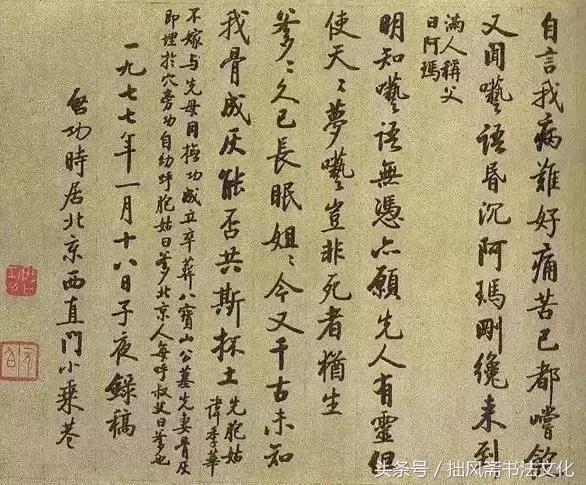 自言我病難好痛苦已都嚐飽
又聞囈語昏沉阿瑪剛纔來到
滿人稱父
曰阿瑪
明知囈語無憑亦願先人有靈但
使天〻夢囈豈非死者猶生
爹〻久已長眠姐〻今又千古未知
我骨成灰能否共斯抔土
先胞姑
諱季華
不嫁與先母同撫功成立卒葬八寶山公墓先妻骨灰
即埋於穴旁功自幼呼胞姑曰爹北京人每呼叔父曰爹也
一九七七年一月十八日子夜錄稿
啓功時居北京西直門小乘巷
头条号 / 拙风斋书法文化